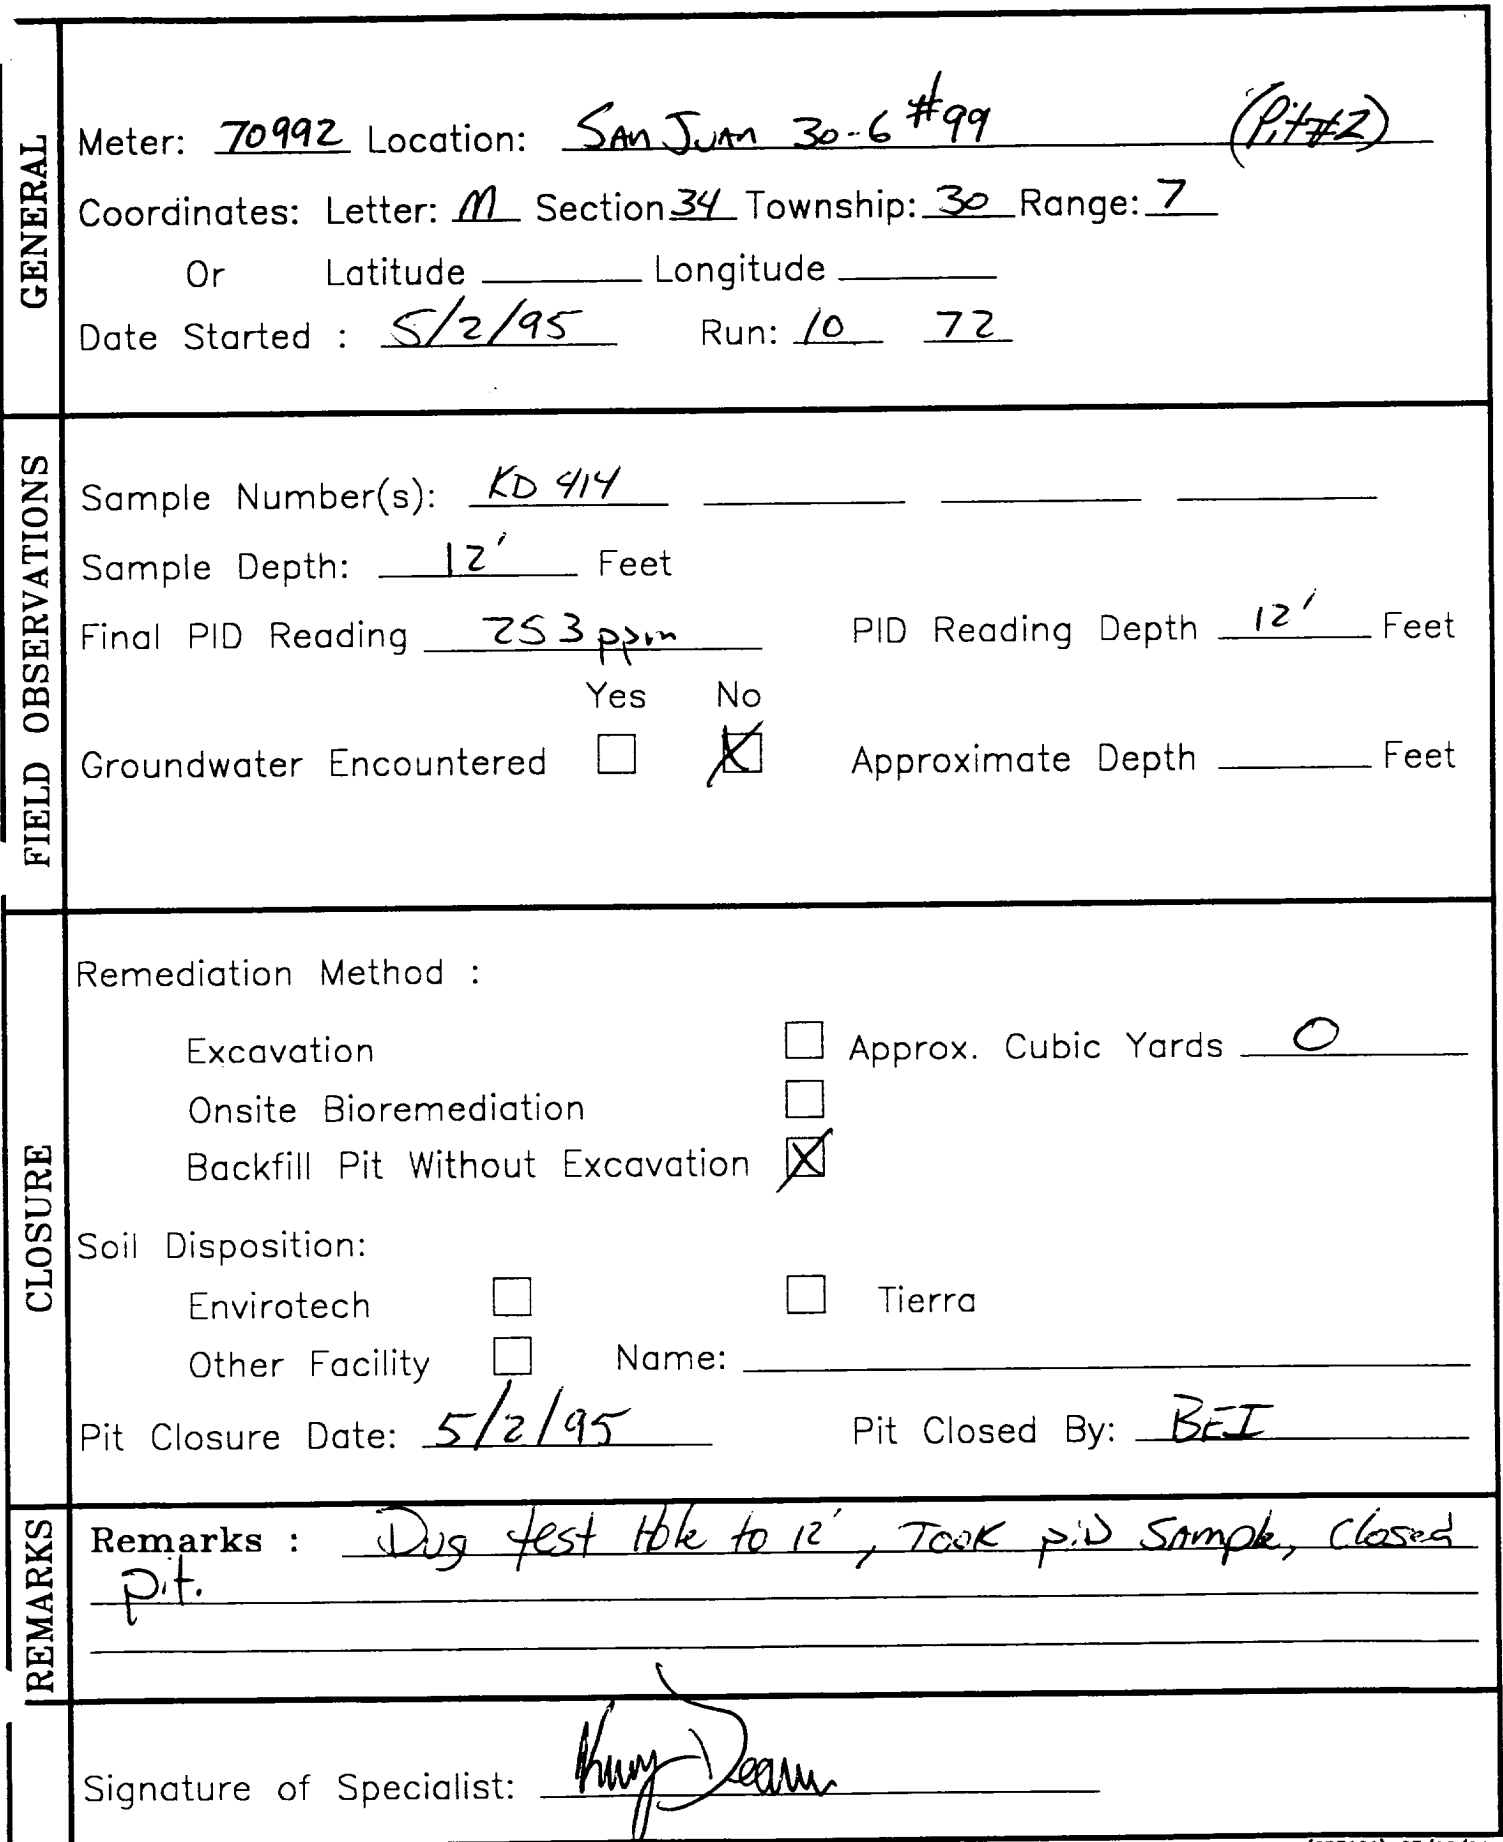 GENERAL
Meter: 70992 Location: SAN JUAN 30-6 #99 (Pit#2)
Coordinates: Letter: M Section 34 Township: 30 Range: 7
Or Latitude Longitude
Date Started : 5/2/95 Run: 10 72
FIELD OBSERVATIONS
Sample Number(s): KD 414
Sample Depth: 12' Feet
Final PID Reading 253 ppm PID Reading Depth 12' Feet
Yes No
Groundwater Encountered Approximate Depth Feet
CLOSURE
Remediation Method :
Excavation Approx. Cubic Yards 0
Onsite Bioremediation
Backfill Pit Without Excavation
Soil Disposition:
Envirotech Tierra
Other Facility Name:
Pit Closure Date: 5/2/95 Pit Closed By: BEI
REMARKS
Remarks : Dug test Hole to 12', Took PiD Sample, Closed
pit.
Signature of Specialist: